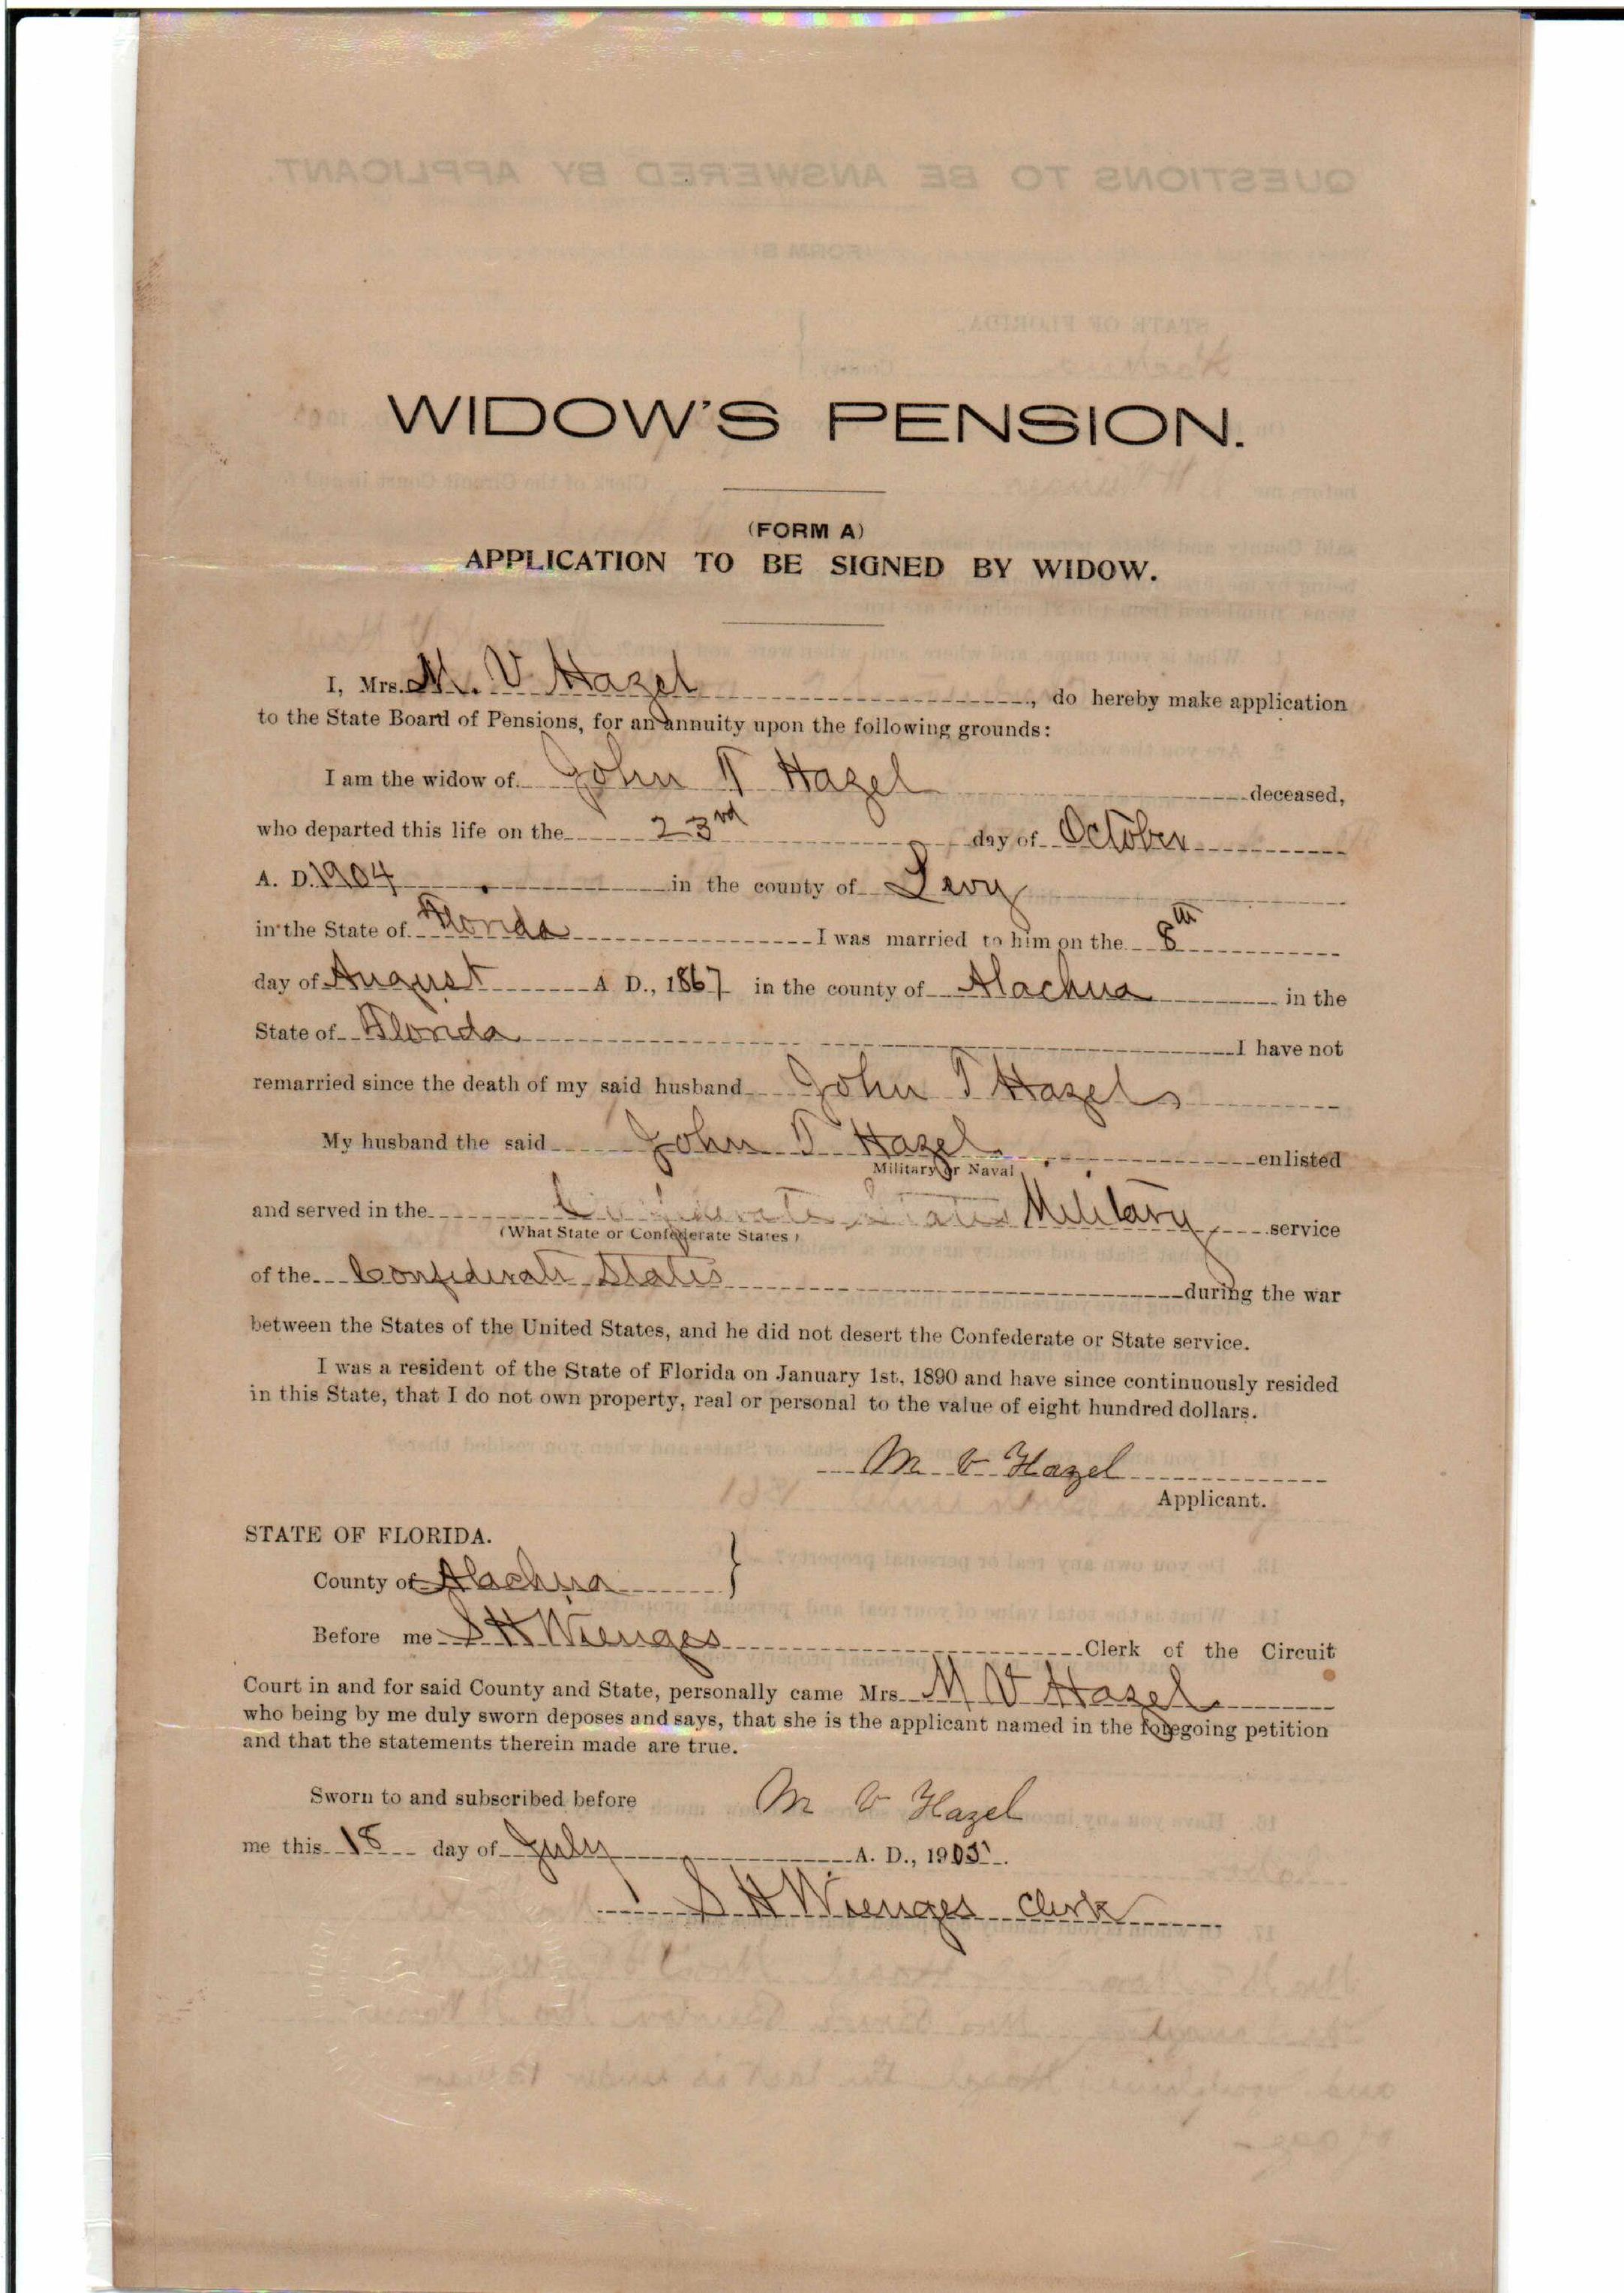 WIDOW'S PENSION.
(FORM A)
APPLICATION TO BE SIGNED BY WIDOW.
I, Mrs. M. V Hazel, do hereby make application
to the State Board of Pensions, for an annuity upon the following grounds:
I am the widow of John T Hazel deceased,
who departed this life on the 23rd day of October
A. D. 1904 in the county of Levy
in the State of Florida I was married to him on the 8th
day of August A D., 1867 in the county of Alachua in the
State of Florida I have not
remarried since the death of my said husband John T Hazel
My husband the said John T Hazel enlisted
Military or Naval
and served in the Confederate States Military service
(What State or Confederate States)
of the Confederate States during the war
between the States of the United States, and he did not desert the Confederate or State service.
I was a resident of the State of Florida on January 1st, 1890 and have since continuously resided
in this State, that I do not own property, real or personal to the value of eight hundred dollars.
M V Hazel
Applicant.
STATE OF FLORIDA.
County of Alachua
Before me S H Wienges Clerk of the Circuit
Court in and for said County and State, personally came Mrs. M V Hazel
who being by me duly sworn deposes and says, that she is the applicant named in the foregoing petition
and that the statements therein made are true.
Sworn to and subscribed before M V Hazel
me this 18 day of July A. D., 1905.
S H Wienges Clerk